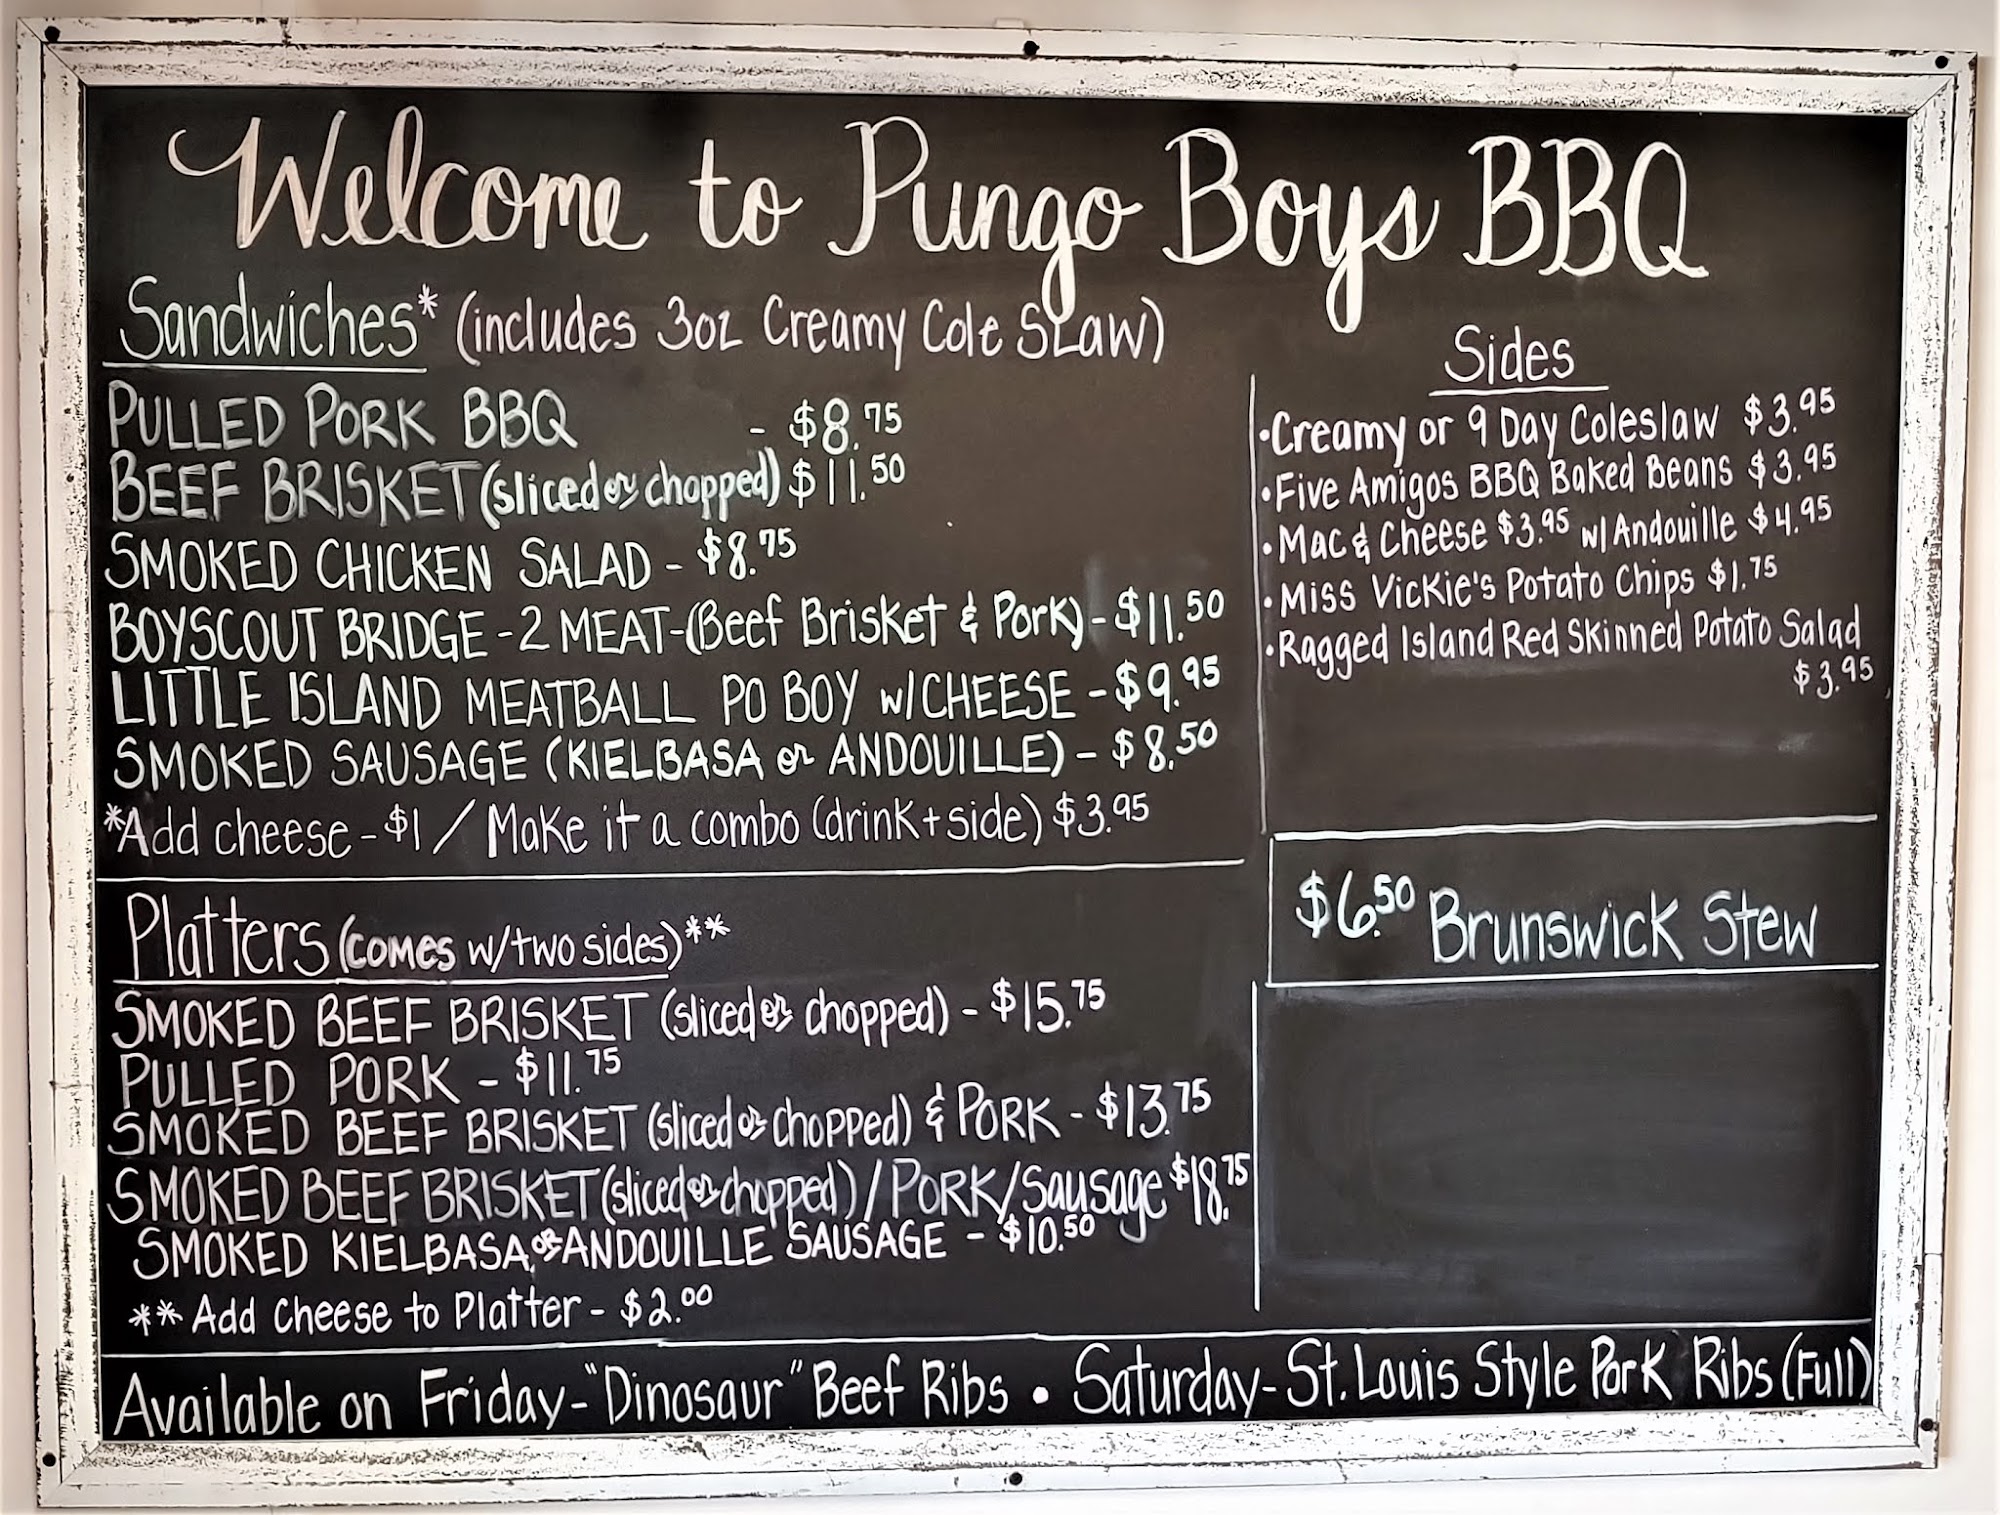 Welcome to Pungo Boys BBQ
Sandwiches* (includes 3oz Creamy Cole Slaw)
PULLED PORK BBQ - $8.75
BEEF BRISKET (sliced or chopped) $11.50
SMOKED CHICKEN SALAD - $8.75
BOYSCOUT BRIDGE - 2 MEAT - (Beef Brisket & Pork) - $11.50
LITTLE ISLAND MEATBALL PO BOY w/CHEESE - $9.95
SMOKED SAUSAGE (KIELBASA or ANDOUILLE) - $8.50
*Add cheese - $1 / Make it a combo (drink + side) $3.95
Platters (comes w/two sides)**
SMOKED BEEF BRISKET (sliced or chopped) - $15.75
PULLED PORK - $11.75
SMOKED BEEF BRISKET (sliced or chopped) & PORK - $13.75
SMOKED BEEF BRISKET (sliced or chopped) / PORK / Sausage $18.75
SMOKED KIELBASA or ANDOUILLE SAUSAGE - $10.50
** Add Cheese to Platter - $2.00
Sides
•Creamy or 9 Day Coleslaw $3.95
•Five Amigos BBQ Baked Beans $3.95
•Mac & Cheese $3.95 w/Andouille $4.95
•Miss Vickie's Potato Chips $1.75
•Ragged Island Red Skinned Potato Salad
$3.95
$6.50 Brunswick Stew
Available on Friday - "Dinosaur" Beef Ribs • Saturday - St. Louis Style Pork Ribs (Full)